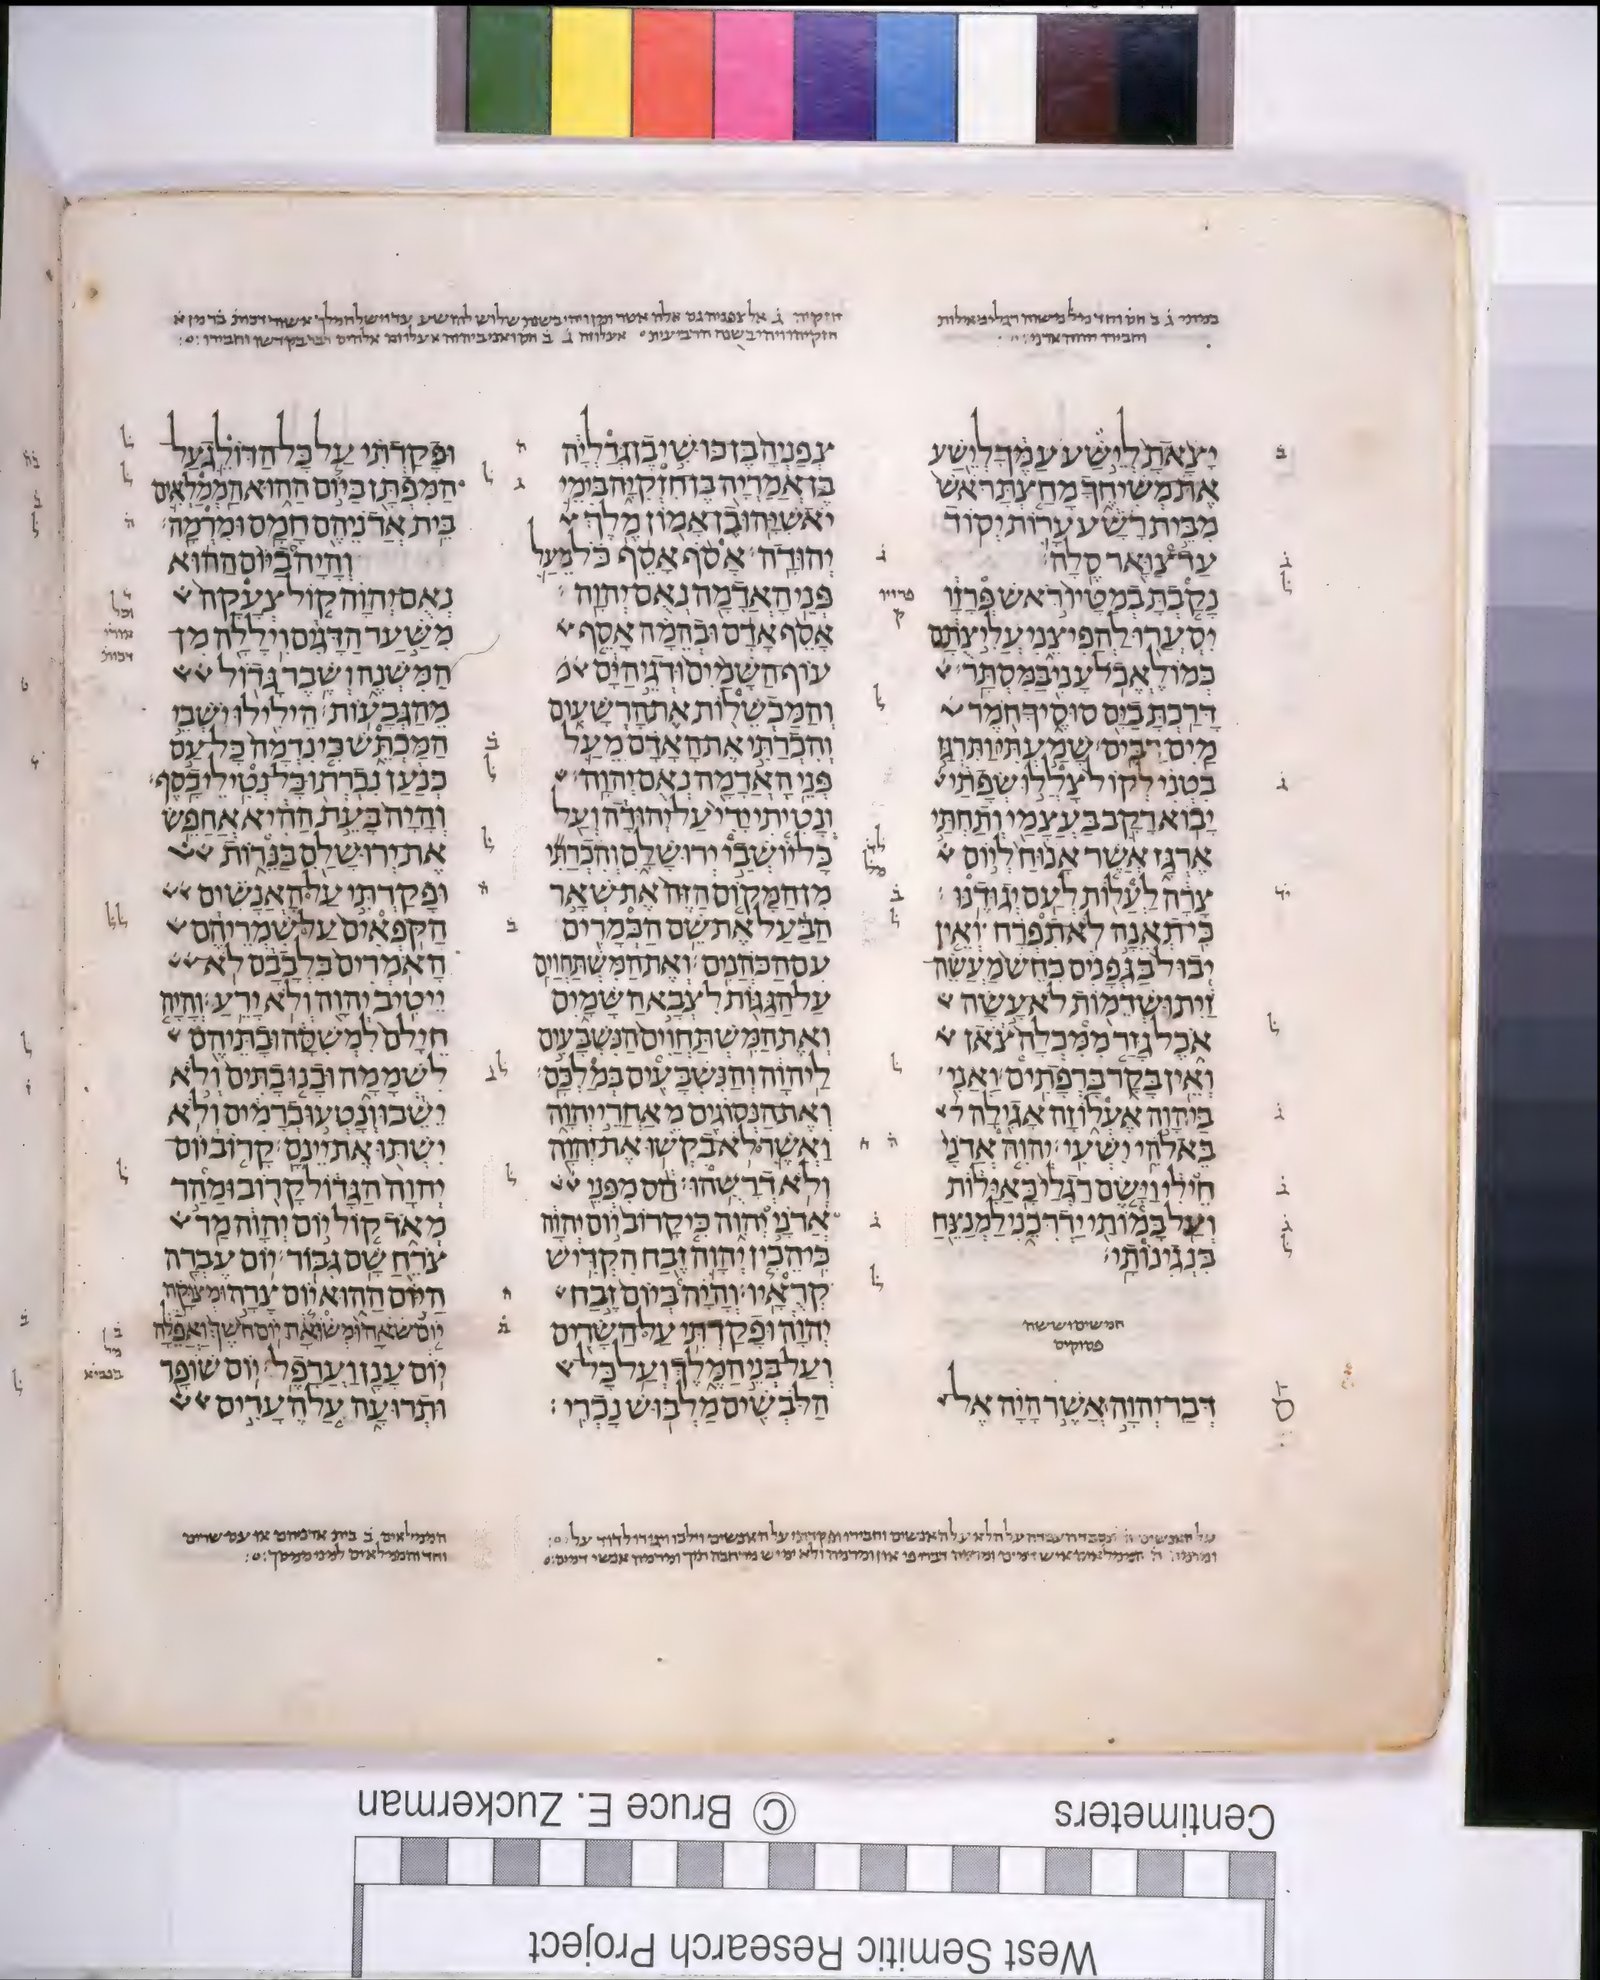 יצאת לישע עמך לישע
את משיחך מחצת ראש
מבית רשע ערות יסוד
עד צואר סלה׃
נקבת במטיו ראש פרזו
יסערו להפיצני עליצתם
כמו לאכל עני במסתר׃
דרכת בים סוסיך חמר
מים רבים׃ שמעתי ותרגז
בטני לקול צללו שפתי
יבוא רקב בעצמי ותחתי
ארגז אשר אנוח ליום
צרה לעלות לעם יגודנו׃
כי תאנה לא תפרח ואין
יבול בגפנים כחש מעשה
זית ושדמות לא עשה
אכל גזר ממכלה צאן
ואין בקר ברפתים׃ ואני
ביהוה אעלוזה אגילה
באלהי ישעי׃ יהוה אדני
חילי וישם רגלי כאילות
ועל במותי ידרכני למנצח
בנגינותי׃
חמשים וששה
פסוקים
דבר יהוה אשר היה אל
צפניה בן כושי בן גדליה
בן אמריה בן חזקיה בימי
יאשיהו בן אמון מלך
יהודה׃ אסף אסף כל מעל
פני האדמה נאם יהוה׃
אסף אדם ובהמה אסף
עוף השמים ודגי הים
והמכשלות את הרשעים
והכרתי את האדם מעל
פני האדמה נאם יהוה׃
ונטיתי ידי על יהודה ועל
כל יושבי ירושלם והכרתי
מן המקום הזה את שאר
הבעל את שם הכמרים
עם הכהנים׃ ואת המשתחוים
על הגגות לצבא השמים
ואת המשתחוים הנשבעים
ליהוה והנשבעים במלכם׃
ואת הנסוגים מאחרי יהוה
ואשר לא בקשו את יהוה
ולא דרשהו׃ הס מפני
אדני יהוה כי קרוב יום יהוה
כי הכין יהוה זבח הקדיש
קראיו׃ והיה ביום זבח
יהוה ופקדתי על השרים
ועל בני המלך ועל כל
הלבשים מלבוש נכרי׃
ופקדתי על כל הדולג על
המפתן ביום ההוא הממלאים
בית אדניהם חמס ומרמה׃
והיה ביום ההוא
נאם יהוה קול צעקה
משער הדגים ויללה מן
המשנה ושבר גדול
מהגבעות׃ הילילו ישבי
המכתש כי נדמה כל עם
כנען נכרתו כל נטילי כסף׃
והיה בעת ההיא אחפש
את ירושלם בנרות
ופקדתי על האנשים
הקפאים על שמריהם
האמרים בלבבם לא
ייטיב יהוה ולא ירע׃ והיה
חילם למשסה ובתיהם
לשממה ובנו בתים ולא
ישבו ונטעו כרמים ולא
ישתו את יינם׃ קרוב יום
יהוה הגדול קרוב ומהר
מאד קול יום יהוה מר
צרח שם גבור׃ יום עברה
היום ההוא יום צרה ומצוקה
יום שאה ומשואה יום חשך ואפלה
יום ענן וערפל׃ יום שופר
ותרועה על הערים
© Bruce E. Zuckerman
Centimeters
West Semitic Research Project